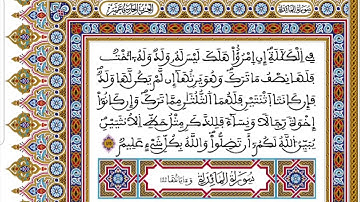 سورة المائدة
فِے اِ۬لْكَلَٰلَةِ إِنِ اِ۪مْرُؤٌاْ هَلَكَ لَيْسَ لَهُۥ وَلَدٞ وَلَهُۥٓ أُخْتٞ
فَلَهَا نِصْفُ مَا تَرَكَ وَهُوَ يَرِثُهَآ إِن لَّمْ يَكُن لَّهَا وَلَدٞ
فَإِن كَانَتَا اَ۪ثْنَتَيْنِ فَلَهُمَا اَ۬لثُّلُثَٰنِ مِمَّا تَرَكَ وَإِن كَانُوٓاْ
إِخْوَةٗ رِّجَالٗا وَنِسَآءٗ فَلِلذَّكَرِ مِثْلُ حَظِّ اِ۬لُانثَيَيْنِ
يُبَيِّنُ اُ۬للَّهُ لَكُمُۥٓ أَن تَضِلُّواْ وَاللَّهُ بِكُلِّ شَےْءٍ عَلِيمٌ
سورة المائدة